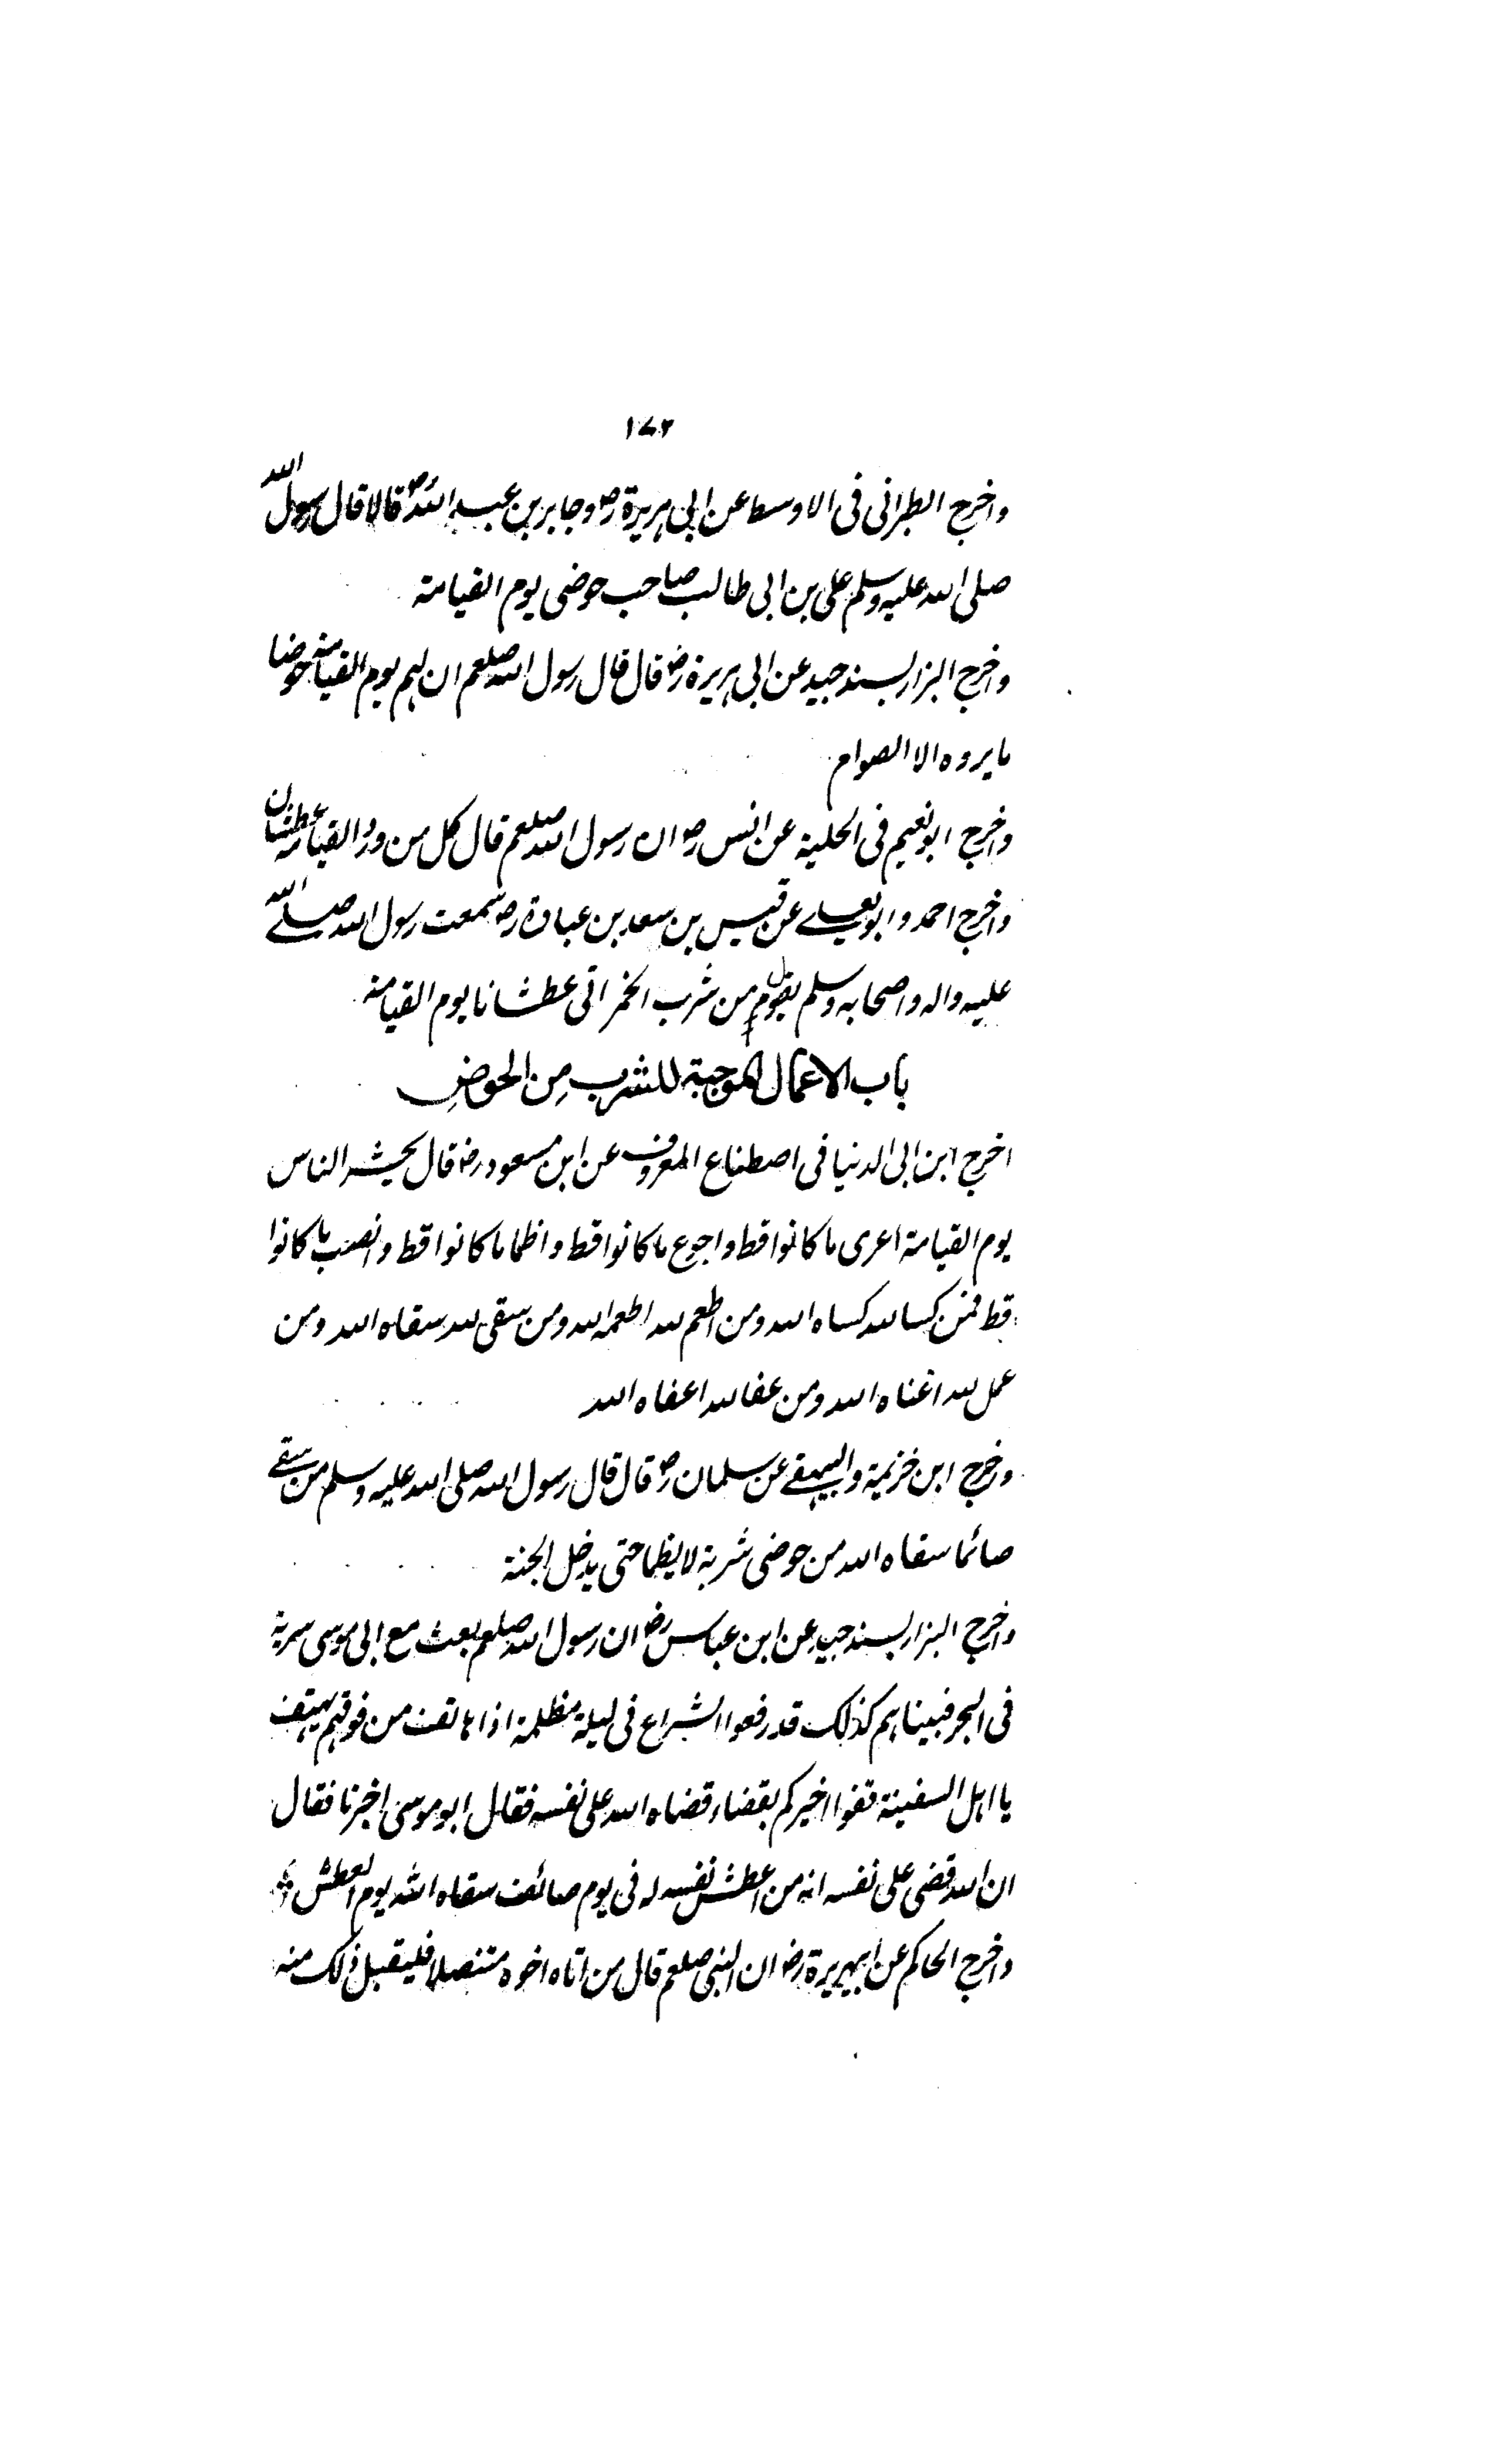 ١٧٢
واخرج الطبرانی فی الاوسط عن ابی ہریرۃ رض وجابر بن عبد اللہ رض قالا قال رسول اللہ
صلی اللہ علیہ وسلم علی بن ابی طالب صاحب حوضی یوم القیامۃ
واخرج البزار بسند جید عن ابی ہریرۃ رض قال قال رسول اللہ صلعم ان لہم یوم القیامۃ حوضا
ما یروہ الا الصوام
واخرج ابو نعیم فی الحلیۃ عن انس رض ان رسول اللہ صلعم قال کل من ورد القیامۃ عطشان
واخرج احمد وابو یعلے عن قیس بن سعد بن عبادۃ رض سمعت رسول اللہ صلے اللہ
علیہ والہ واصحابہ وسلم یقول من شرب الخمر اتی عطشانا یوم القیامۃ
باب الاعمال الموجبۃ للشرب مِن الحوضِ
اخرج ابن ابی الدنیا فی اصطناع المعروف عن ابن مسعود رض قال یحشر الناس
یوم القیامۃ اعری ما کانوا قط واجوع ما کانوا قط واظما ما کانوا قط وانصب ما کانوا
قط فمن کسا للہ کساہ اللہ ومن اطعم للہ اطعمہ اللہ ومن سقی للہ سقاہ اللہ ومن
عمل للہ اغناہ اللہ ومن عفا للہ اعفاہ اللہ
واخرج ابن خزیمۃ والبیہقے عن سلمان رض قال قال رسول اللہ صلی اللہ علیہ وسلم من سقے
صائما سقاہ اللہ من حوضی شربۃ لا یظما حتی یدخل الجنۃ
واخرج البزار بسند جید عن ابن عباس رض ان رسول اللہ صلعم بعث مع ابی موسی سریۃ
فی البحر فبینا ہم کذلک قد رفعوا الشراع فی لیلۃ مظلمۃ اذا ہاتف من فوقہم یہتف
یا اہل السفینۃ قفوا اخبرکم بقضاء قضاہ اللہ علی نفسہ فقال ابو موسی اخبرنا فقال
ان اللہ قضی علی نفسہ انہ من اعطش نفسہ لہ فی یوم صائف سقاہ اللہ یوم العطش
واخرج الحاکم عن ابیہریرۃ رض ان النبی صلعم قال من اتاہ اخوہ متنصلا فلیقبل ذلک منہ